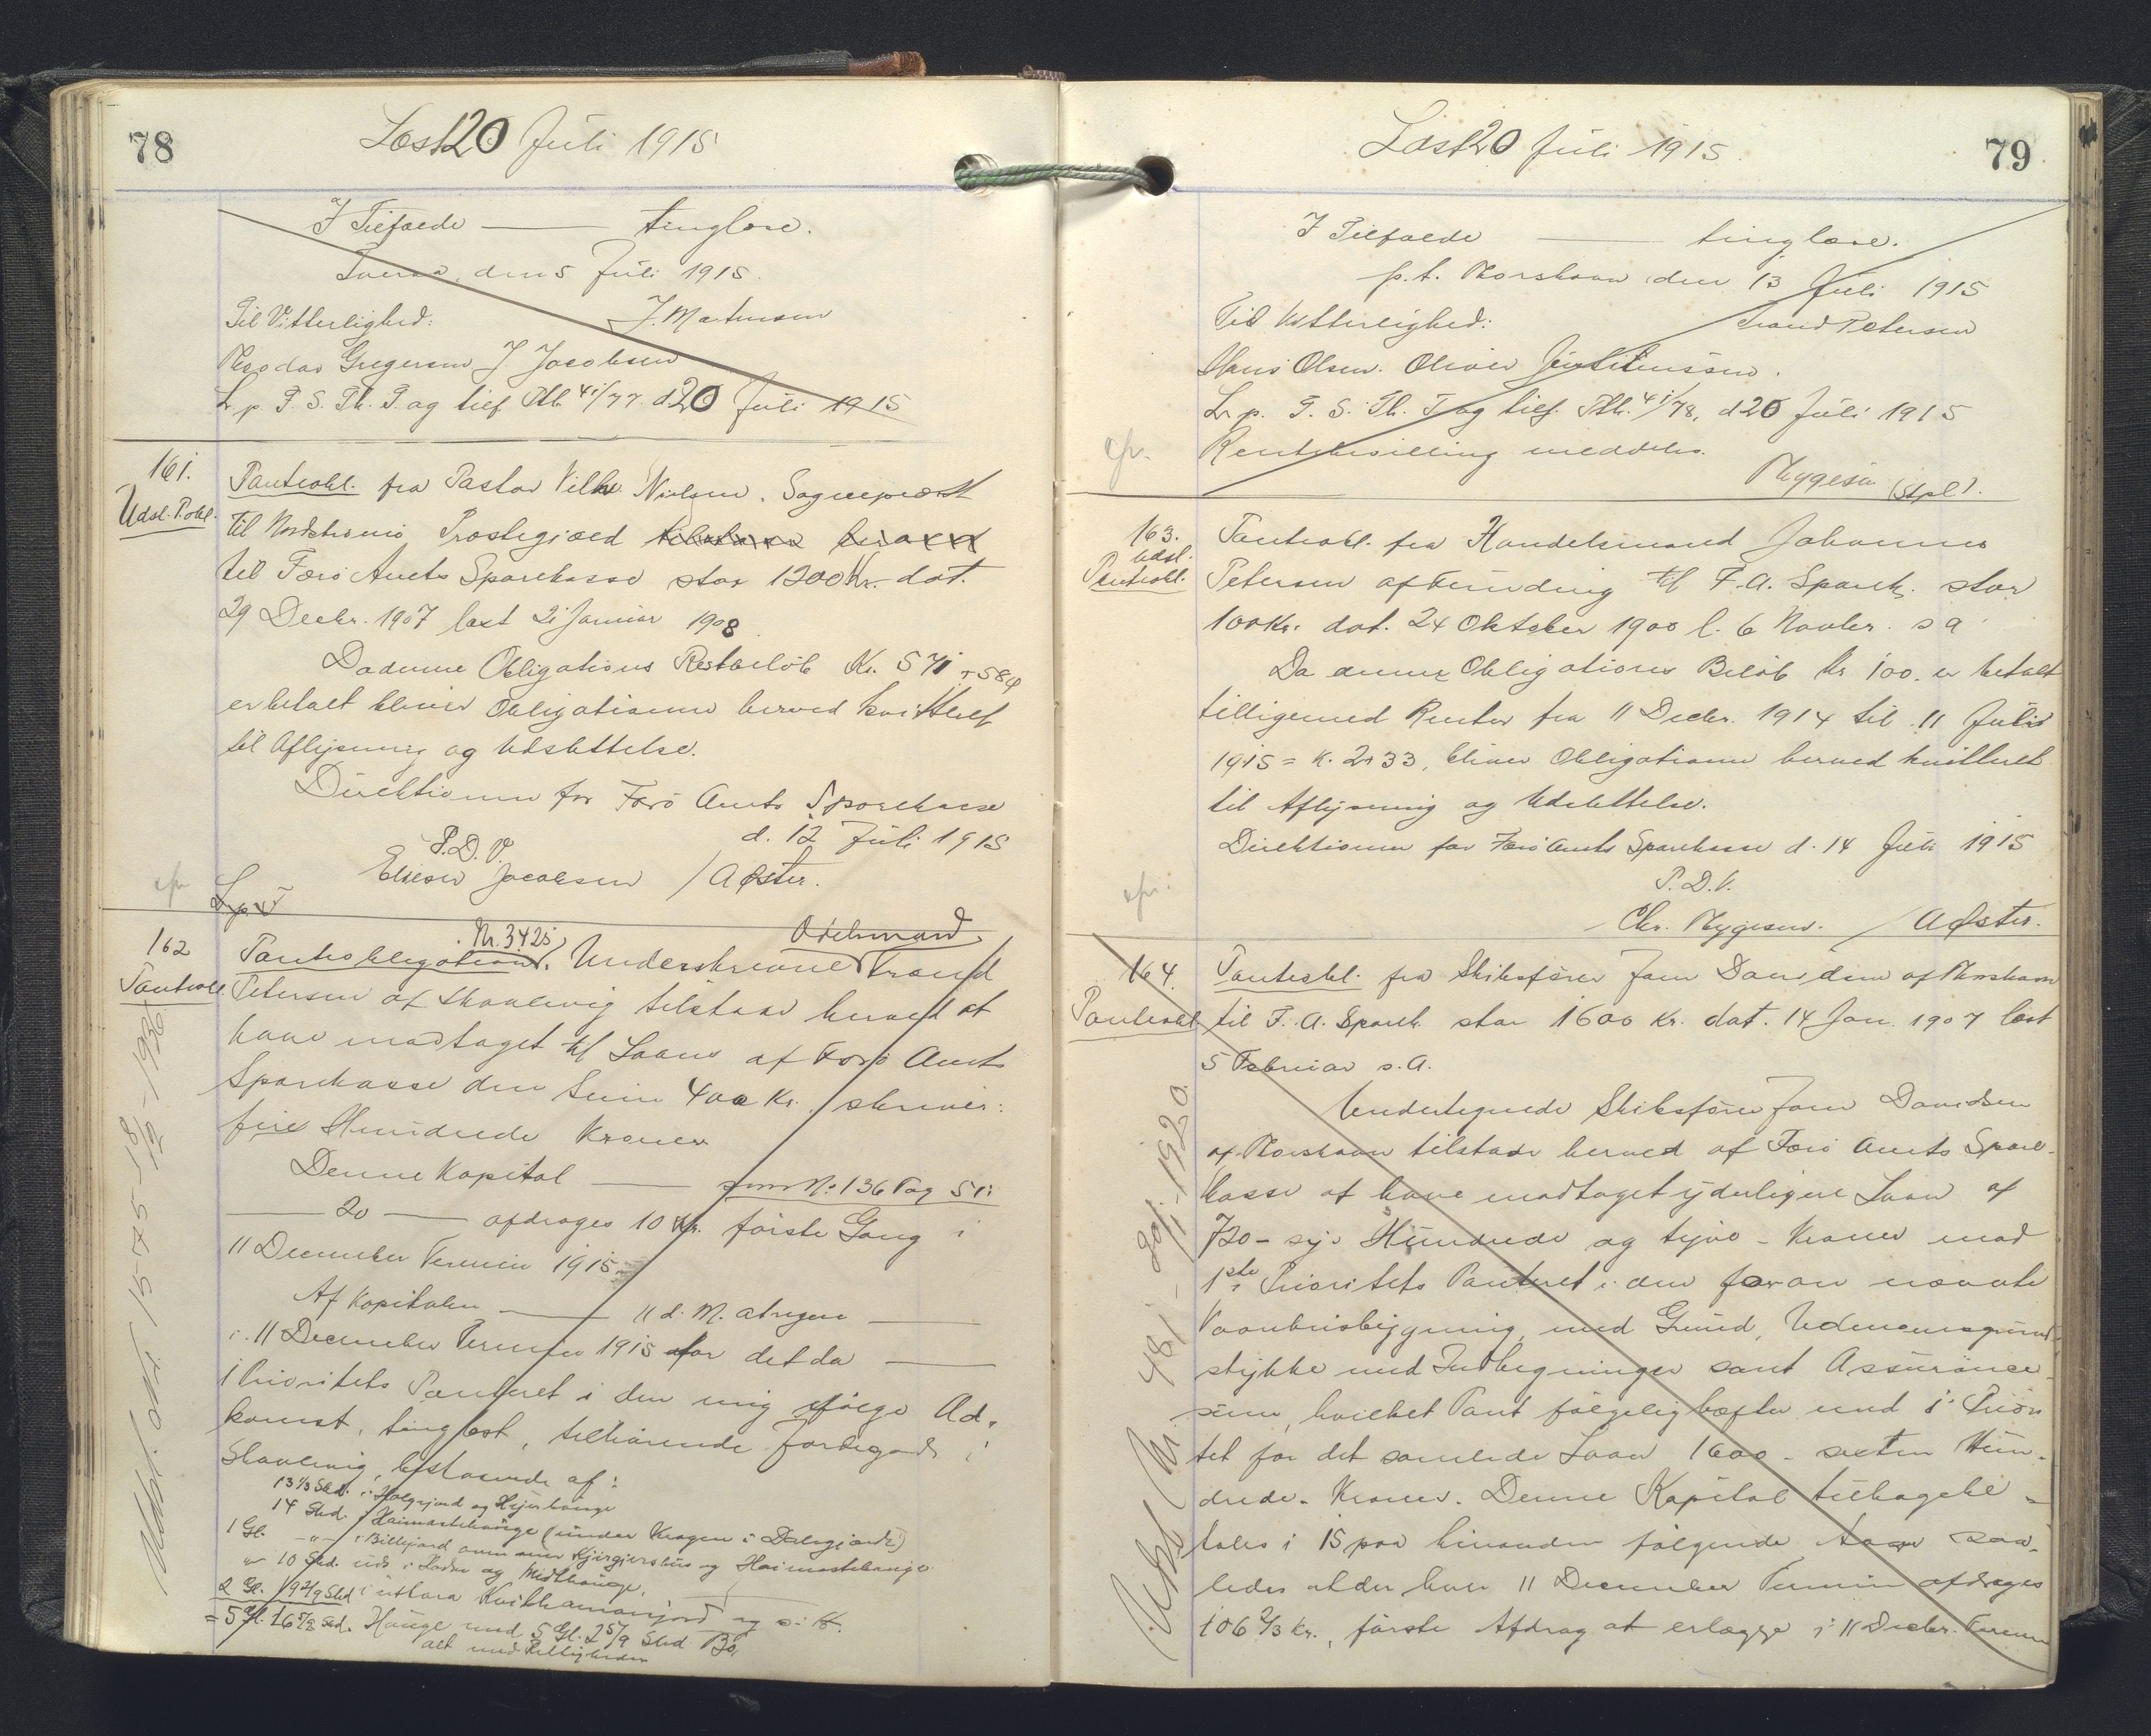 78
Læst 20 Juli 1915
I Tilfælde — tinglæse.
Tveraa, den 5 Juli 1915.
Til Vitterlighed: J. Mortensen
Gregersen J. Jacobsen
L. p. T. S. Th. T. og tilf. Ptb. 41/77 d. 20 Juli 1915
161.
Udsl. P.obl.
Panteobl. fra Pastor Vilh. Nielsen, Sognepræst
til Nordstrømø Præstegjæld
til Færø Amts Sparekasse stor 1200 Kr. dat.
29 Decbr. 1907 læst 21 Januar 1908
Da denne Obligations Restbeløb Kr. 571 + 584
er betalt bliver Obligationen herved kvitteret
til Aflysning og Udslettelse.
Direktionen for Færø Amts Sparekasse
d. 12 Juli 1915
P.D.V.
Elieser Jacobsen / A Øster.
L. p. T
162
Panteobl.
Nr. 3425
Odelsmand
Pantobligation. Underskrevne Trond
Petersen af Skaalevig tilstaar herved at
have modtaget til Laans af Færø Amts
Sparekasse den Sum 400 Kr. skriver:
fire Hundrede Kroner
Denne Kapital — som No. 136 Pag 51:
— 20 — afdrages 10 Kr. første Gang i
11 December Termin 1915
Af Kapitalen — 11 d. M. at regne —
i 11 December Termin 1915 for det da —
1 Prioritets Panteret i den mig ifølge Ad-
komst, tinglæst, tilhørende Jordegods i
Skaalevig, bestaaende af:
13 1/3 Skd. i Høgejord og Hejershauge
14 Skd. i Haimastehauge (under Kragen i Dalsgjarde)
1 Gl. — " — i Billejord
" 10 Skd. uds i og Midthauge,
2 Gl. 19 2/9 Skd i
= 5 Gl. 16 5/9 Skd. Hauge med 5 Gl. 2 5/9 Skd Bø,
alt med Herligheder
Udsl. Nr. 1575 - 18/12 - 1936
79
Læst 20 Juli 1915.
I Tilfælde — tinglæse.
p. t. Thorshavn den 13 Juli 1915
Til Vitterlighed: Trond Petersen
Hans Olsen. Oliver
L. p. T. S. Th. T og tilf. Ptb. 41/78, d 20 Juli 1915
Rentebevilling meddeles.
Mygesen (Stpl).
163.
Udsl.
Panteobl.
Pantobl. fra Handelsmand Johannes
Petersen af Funding til F. A. Spark. stor
100 Kr. dat. 24 Oktober 1900 l. 6 Novbr. s a
Da denne Obligations Beløb Kr 100. er betalt
tilligemed Renter fra 11 Decbr. 1914 til 11 Juli
1915 = K. 2 + 33, bliver Obligationen herved kvitteret
til Aflysning og Udslettelse.
Direktionen for Færø Amts Sparekasse d. 14 Juli 1915
P. D. V.
Chr. Mygesen. / A Øster.
164.
Panteobl.
Panteobl. fra Skibsfører Joen Davidsen af Thorshavn
til F. A. Spark. stor 1600 Kr. dat. 14 Jan. 1907 læst
5 Februar s. A.
Undertegnede Skibsfører Joen Davidsen
af Thorshavn tilstaar herved af Færø Amts Spare-
kasse at have modtaget yderligere Laan af
720 - syv Hundrede og tyve - Kroner mod
1ste Prioritets Panteret i den foran nævnte
Vaaningsbygning, med Grund, Udenomsgrund-
stykke med Indhegninger samt Assurance-
sum, hvilket Pant følgelig hæfter med 1' Priori
tet for det samlede Laan 1600 - sexten Hun-
drede - Kroner. Denne Kapital tilbagebe-
tales i 15 paa hinanden følgende Aar saa-
ledes at der hver 11 December Termin afdrages
106 2/3 Kr., første Afdrag at erlægge i 11 Decbr. Termin
Udsl. Nr. 481 - 20/1 - 1920.